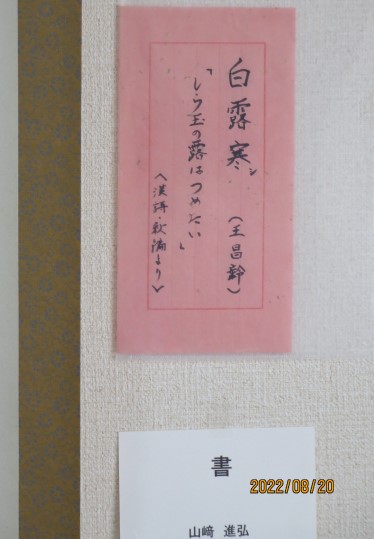 白露寒シ
(王昌齢)
「しら玉の露はつめたい」
〈漢詩・秋 より〉
書
2022/08/20
山﨑 進弘